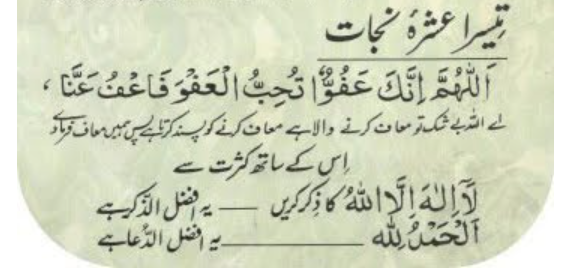 تیسرا عشرۂ نجات
اَللّٰهُمَّ اِنَّكَ عَفُوٌّا تُحِبُّ الْعَفْوَ فَاعْفُ عَنَّا ،
اے اللہ بے شک تو معاف کرنے والا ہے معاف کرنے کو پسند کرتا ہے پس ہمیں معاف فرما دے
اِس کے ساتھ کثرت سے
لَآ اِلٰهَ اِلَّا اللهُ کا ذِکر کریں —— یہ افضل الذّکر ہے
اَلْحَمْدُ لِلّٰه ———————— یہ افضل الدُّعا ہے